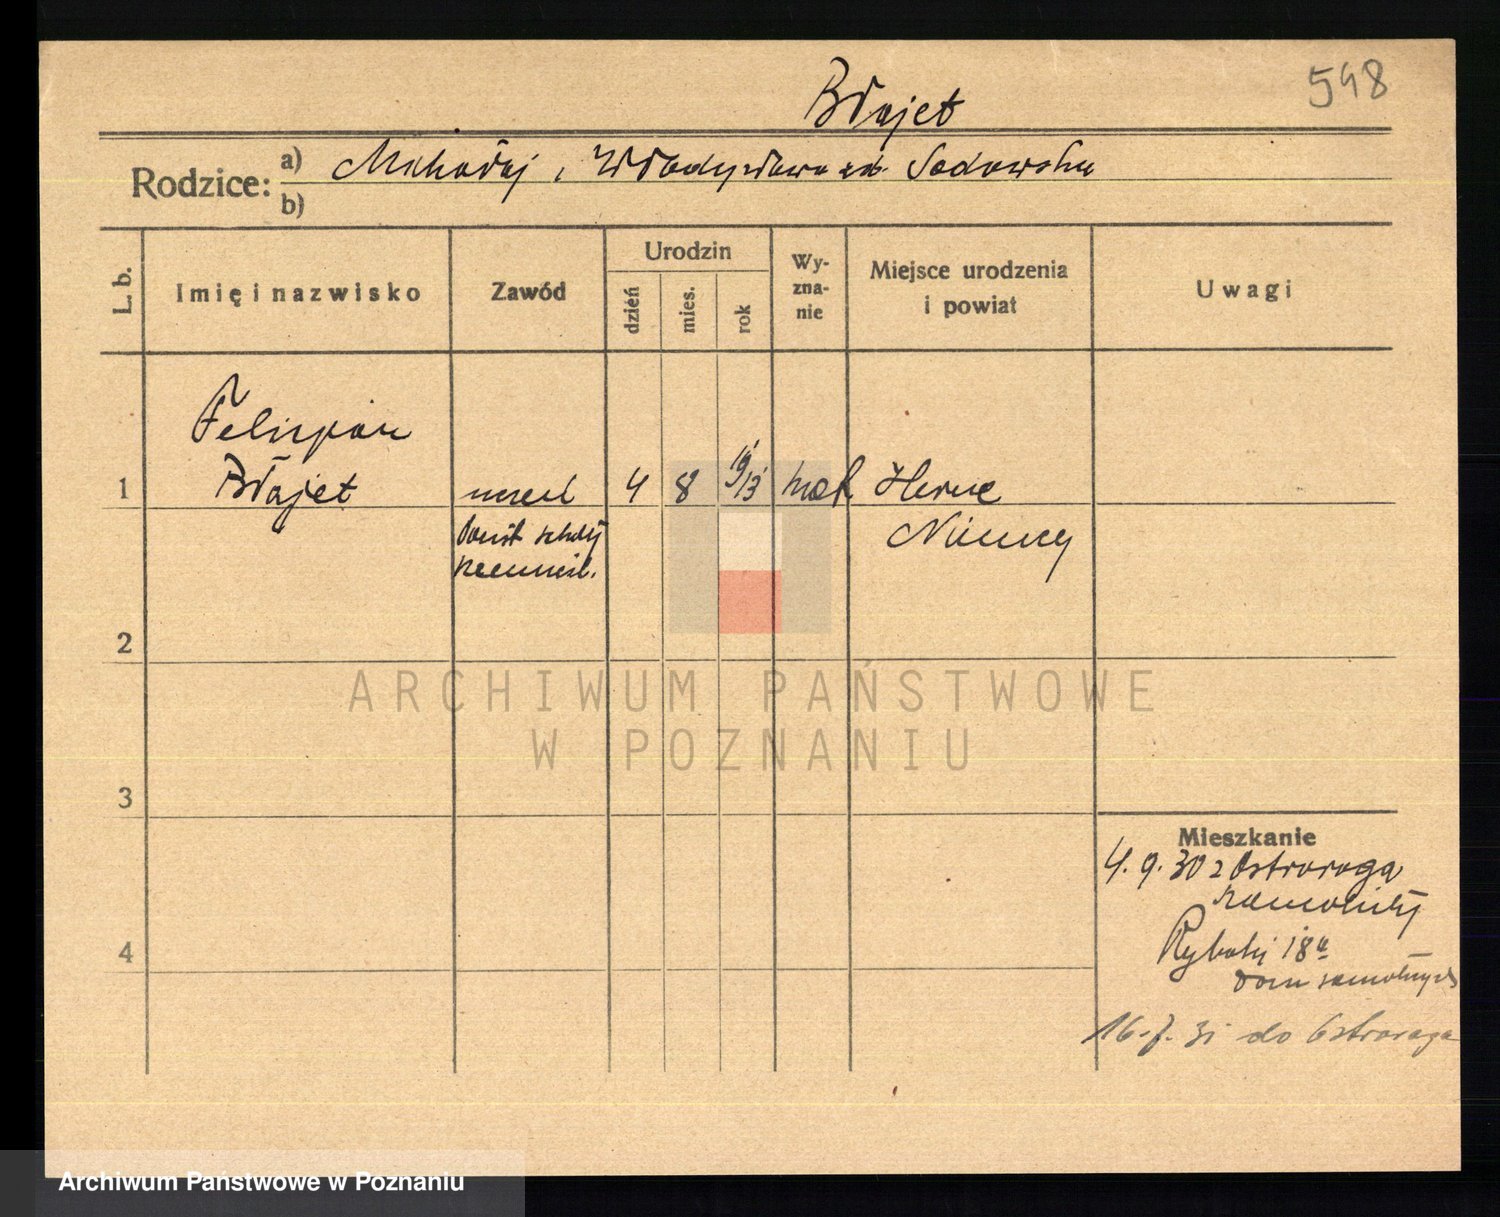 598
Błajet
Rodzice:
a) Mikołaj i Władysława zd. Sadowska
b)
L. b.
Imię i nazwisko
Zawód
Urodzin
dzień
mies.
rok
Wy-
zna-
nie
Miejsce urodzenia
i powiat
Uwagi
1
Felicjan
Błajet
uczeń
4
8
19/13
Herne
Niemcy
2
3
4
Mieszkanie
4. 9. 30 z Ostroroga
Rybaki 18a
16. 7. 31 do Ostroroga
ARCHIWUM PAŃSTWOWE
W POZNANIU
Archiwum Państwowe w Poznaniu